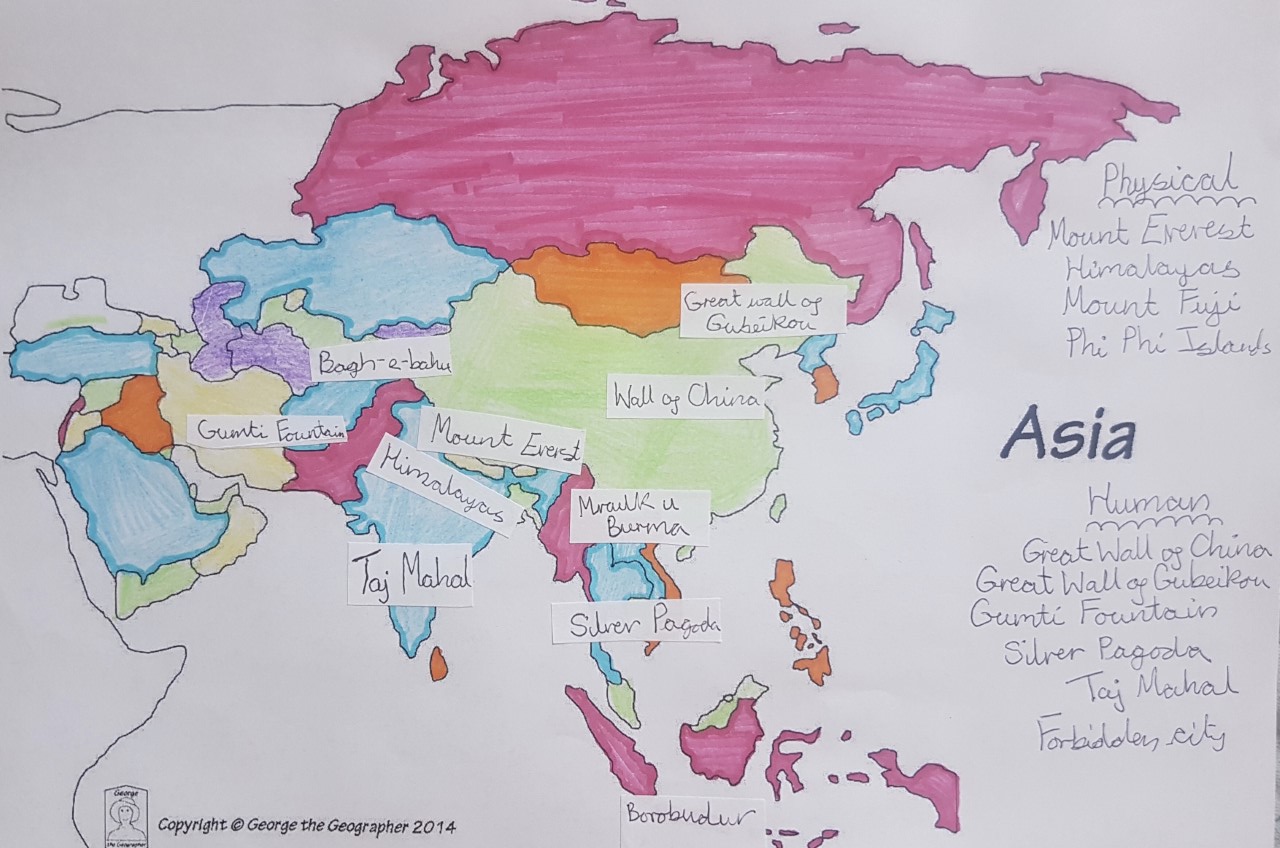 Physical
Mount Everest
Himalayas
Mount Fuji
Phi Phi Islands
Great wall of
Gubeikou
Bagh-e-bahu
Wall of China
Gumti Fountain
Mount Everst
Himalayas
Asia
Mraulk u
Burma
Human
Great Wall of China
Great Wall of Gubeikou
Gumti Fountain
Silver Pagoda
Taj Mahal
Forbidden city
Taj Mahal
Silver Pagoda
Borobudur
George
the Geographer
Copyright © George the Geographer 2014